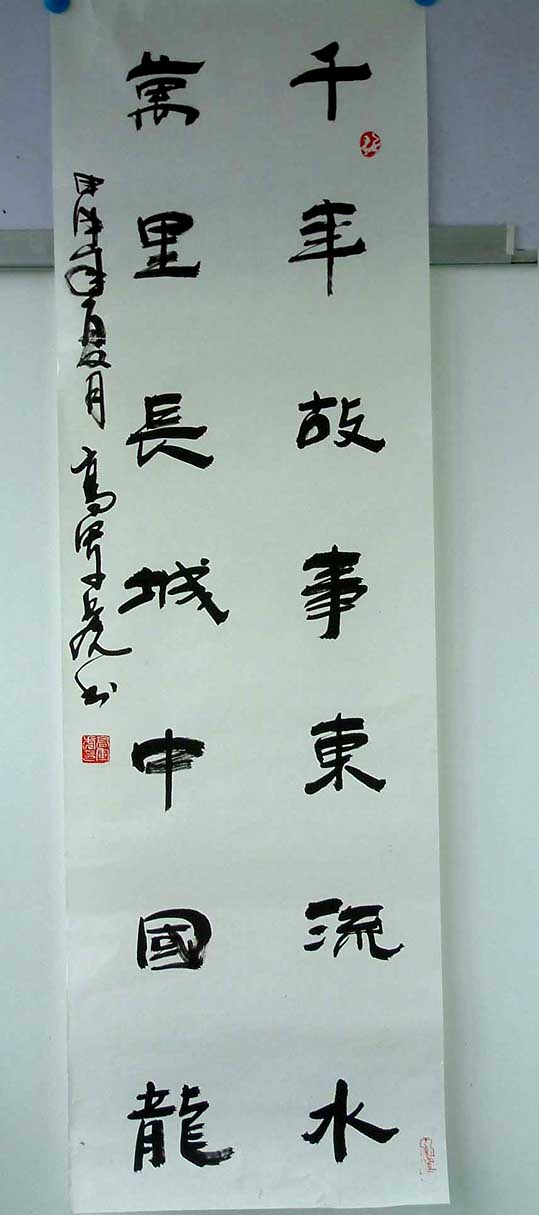 千年故事東流水
萬里長城中國龍
年夏月 高軍虎书